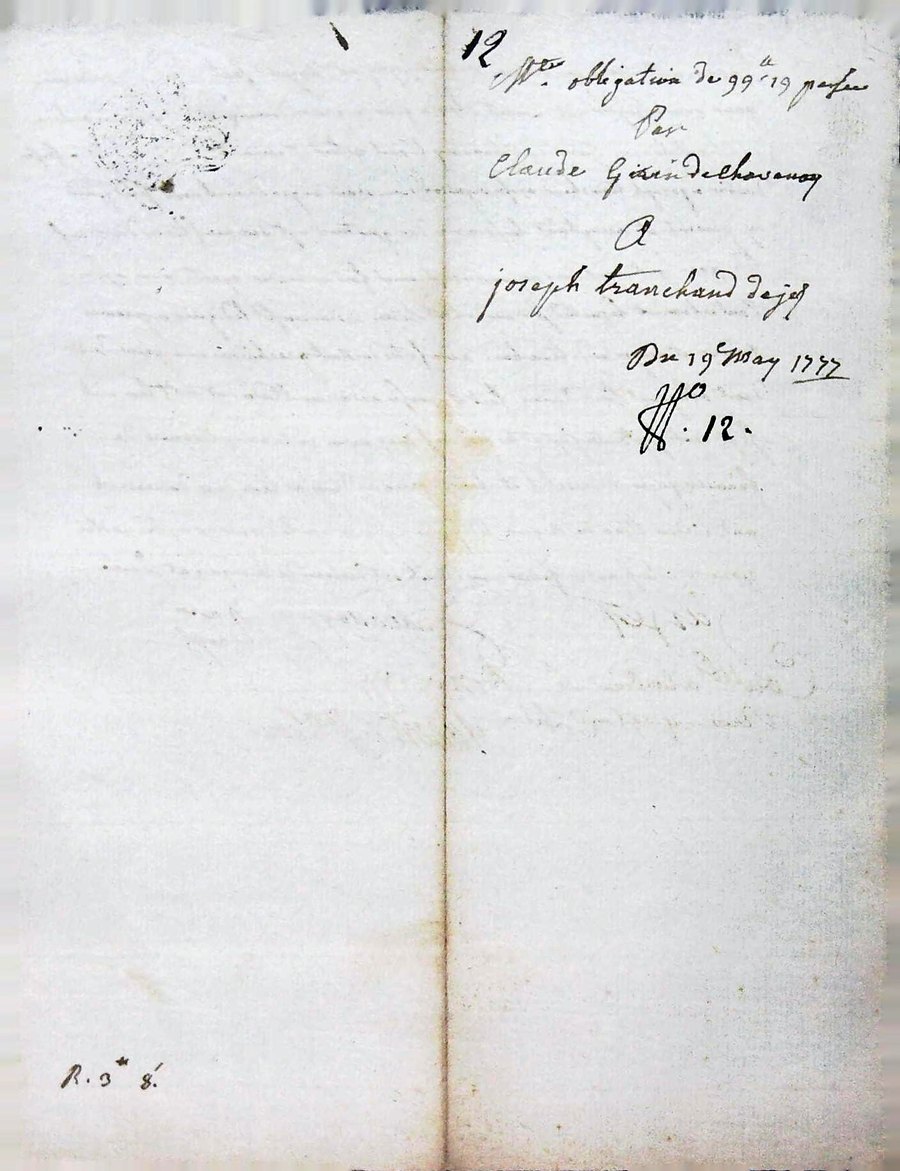 12
Mte. obligation de 99tt 19 passée
Par
Claude Girin de Chavanay
A
joseph tranchand de
Du 19e May 1777
No: 12.
R. 3tt 8.